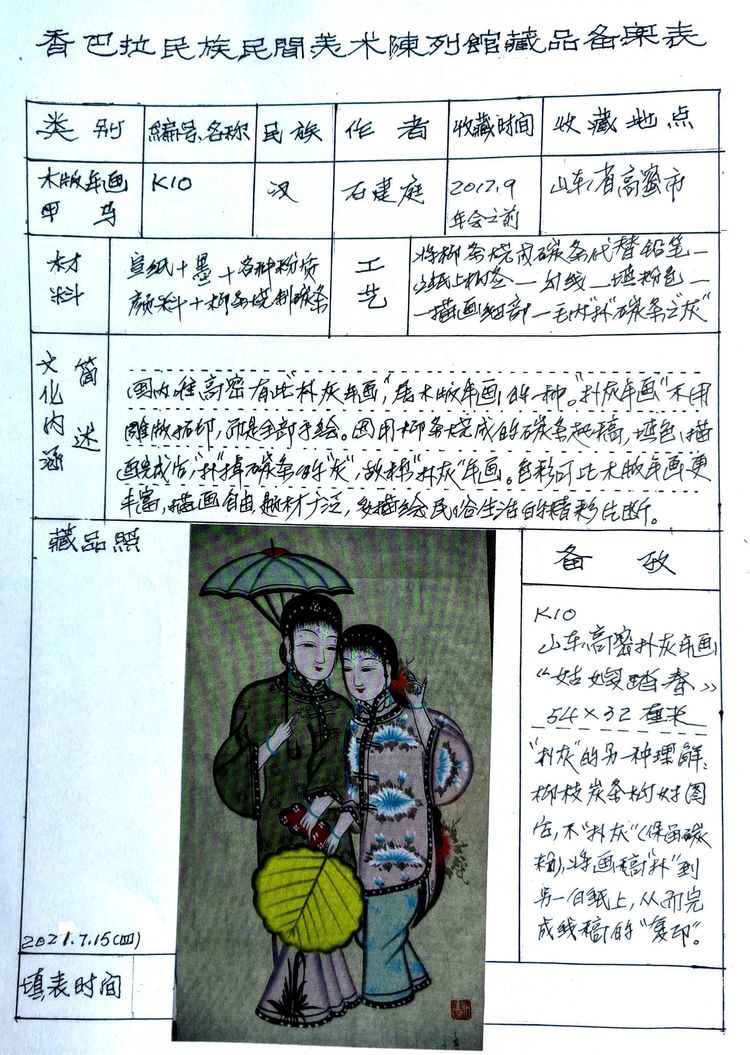 香巴拉民族民間美术陳列館藏品备案表
类别 编号、名称 民族 作者 收藏时间 收藏地点
木版年画 K10 汉 石建庭 2017.9 山东省高蜜市
甲马 年会之前
材料 宣纸+墨+各种粉质
颜料+柳条烧制碳条
工艺 将柳条烧成碳条代替铅笔—
在纸上打
—勾线—填粉色—
—描画细部—毛巾"扑"碳条之"灰"
文化内涵 简述
国内唯高密有此"扑灰年画",属木版年画的一种。"扑灰年画"不用
雕版拓印,而是全部手绘。因用柳条烧成的碳条起稿,填色、描
画完成后,"扑"掉碳条的"灰",故称"扑灰"年画。色彩可比木版年画更
丰富,描画自由,题材广泛,多描绘民俗生活的精彩片断。
藏品照
备考
K10
山东高密扑灰年画
《姑嫂踏春》
54×32厘米
"扑灰"的另一种理解:
柳枝炭条打好图
后,不"扑灰"(保留碳
粉),将画稿"扑"到
另一白纸上,从而完
成线稿的"复印"。
2021.7.15(四)
填表时间